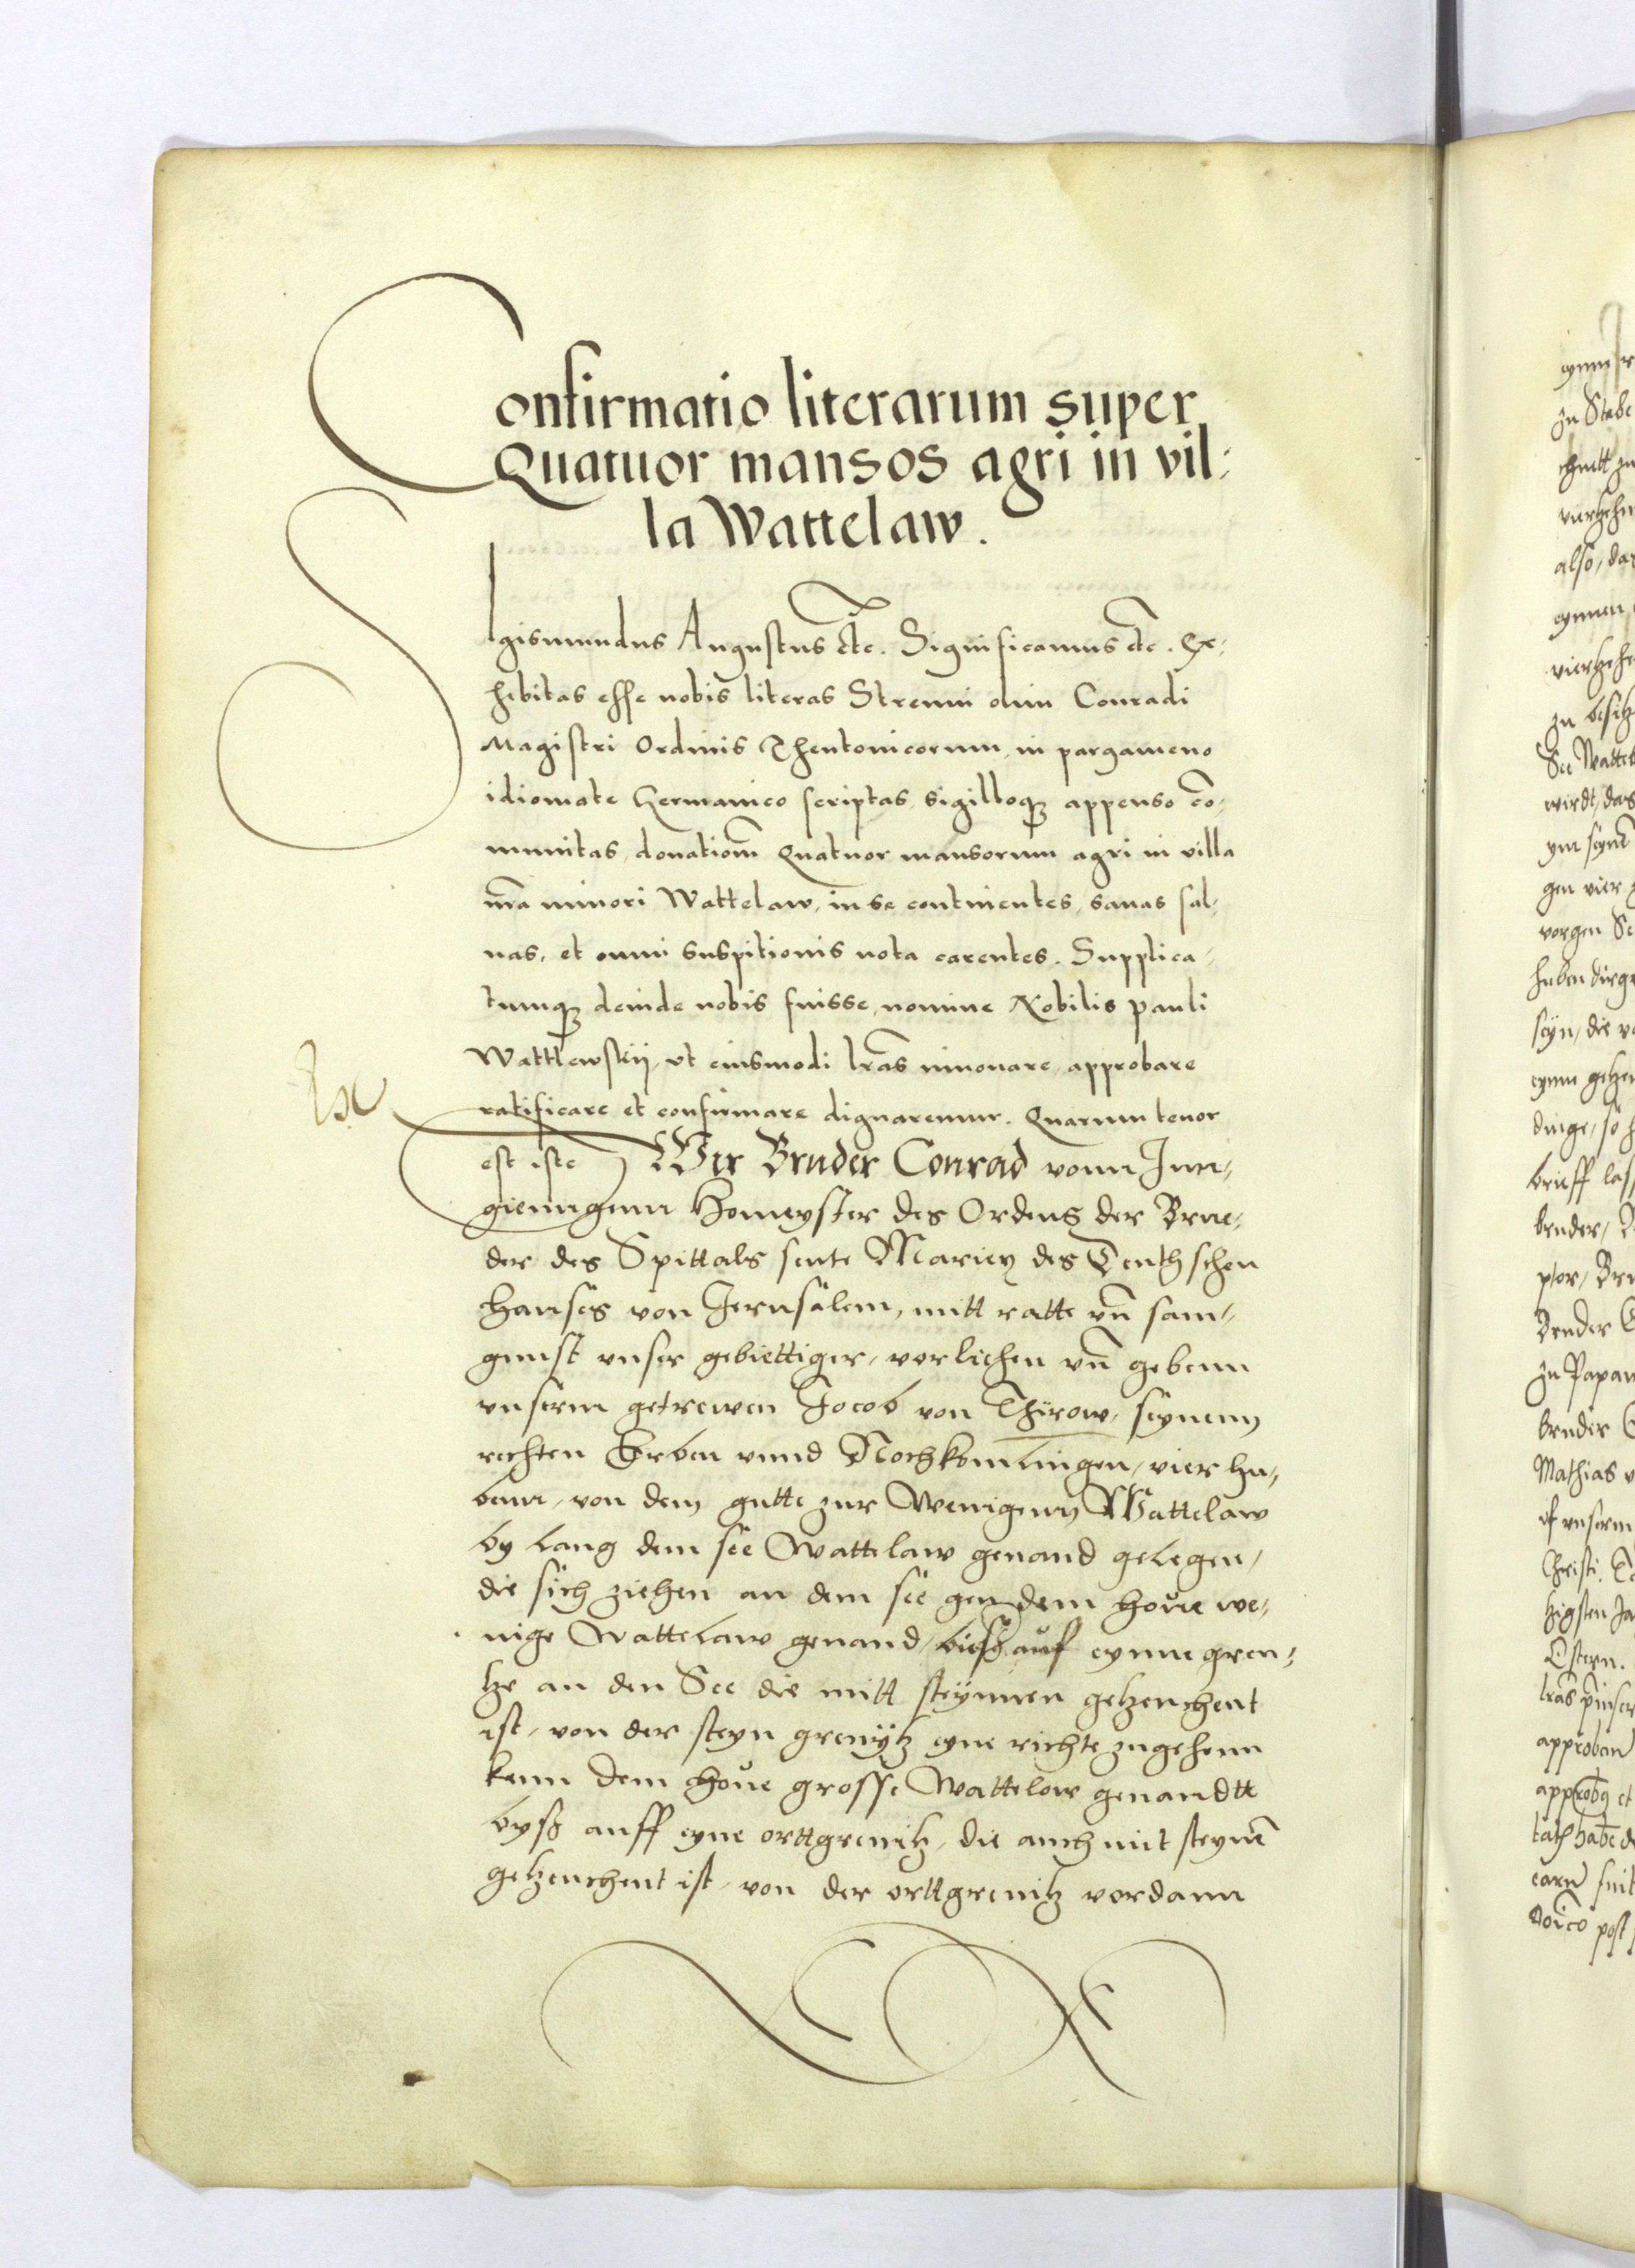 Confirmatio literarum super
Quatuor mansos agri in vil:
la Wattelaw.
SIgismundus Augustus etc. Significamus etc. Ex,
hibitas esse nobis literas Strenui olim Conradi
Magistri Ordinis Theutonicorum, in pargameno
idiomate Germanico scriptas, sigilloq3 appenso co͂,
munitas, donatiom͂ Quatuor mansorum agri in villa
nr͂a minori Wattelaw, in se continentes, sanas sal,
uas, et omni suspitionis nota carentes. Supplica,
tumq3 deinde nobis fuisse, nomine Nobilis Pauli
Wattlewskij, vt eiusmodi lr͂as innouare, approbare
ratificare et confirmare dignaremur. Quarum tenor
est iste Wir Bruder Conrad vonn Jun,
gienngenn Homeyster des Ordens der Brue,
der des Spittals sente Marien des Teutzschen
Hauses von Jerusalem, mitt ratte vn͂ sam,
gunst vnser gebiettiger, vorliehen vn͂ gebenn
vnserm getrewen Jocob von Thirow, seynenn
rechten Erben vnnd Nochkomlingen, vier hu,
benn, von dem gutte zur Wenigenn Wattelaw
by lang dem see Wattelaw genand gelegen,
die sich ziehen an dem see gen dem houe we,
nige Wattelaw genand, bieß auf eynne gren,
tze an den See die mitt steynnen getzenchent
ist, von der steyn grenytz eyne richte zugehenn
kenn dem houe grosse Wattelow genandtt
byß auff eyne orttgrenitz, die auch mit steyne͂
getzenchent ist, von der orttgrenitz vordann